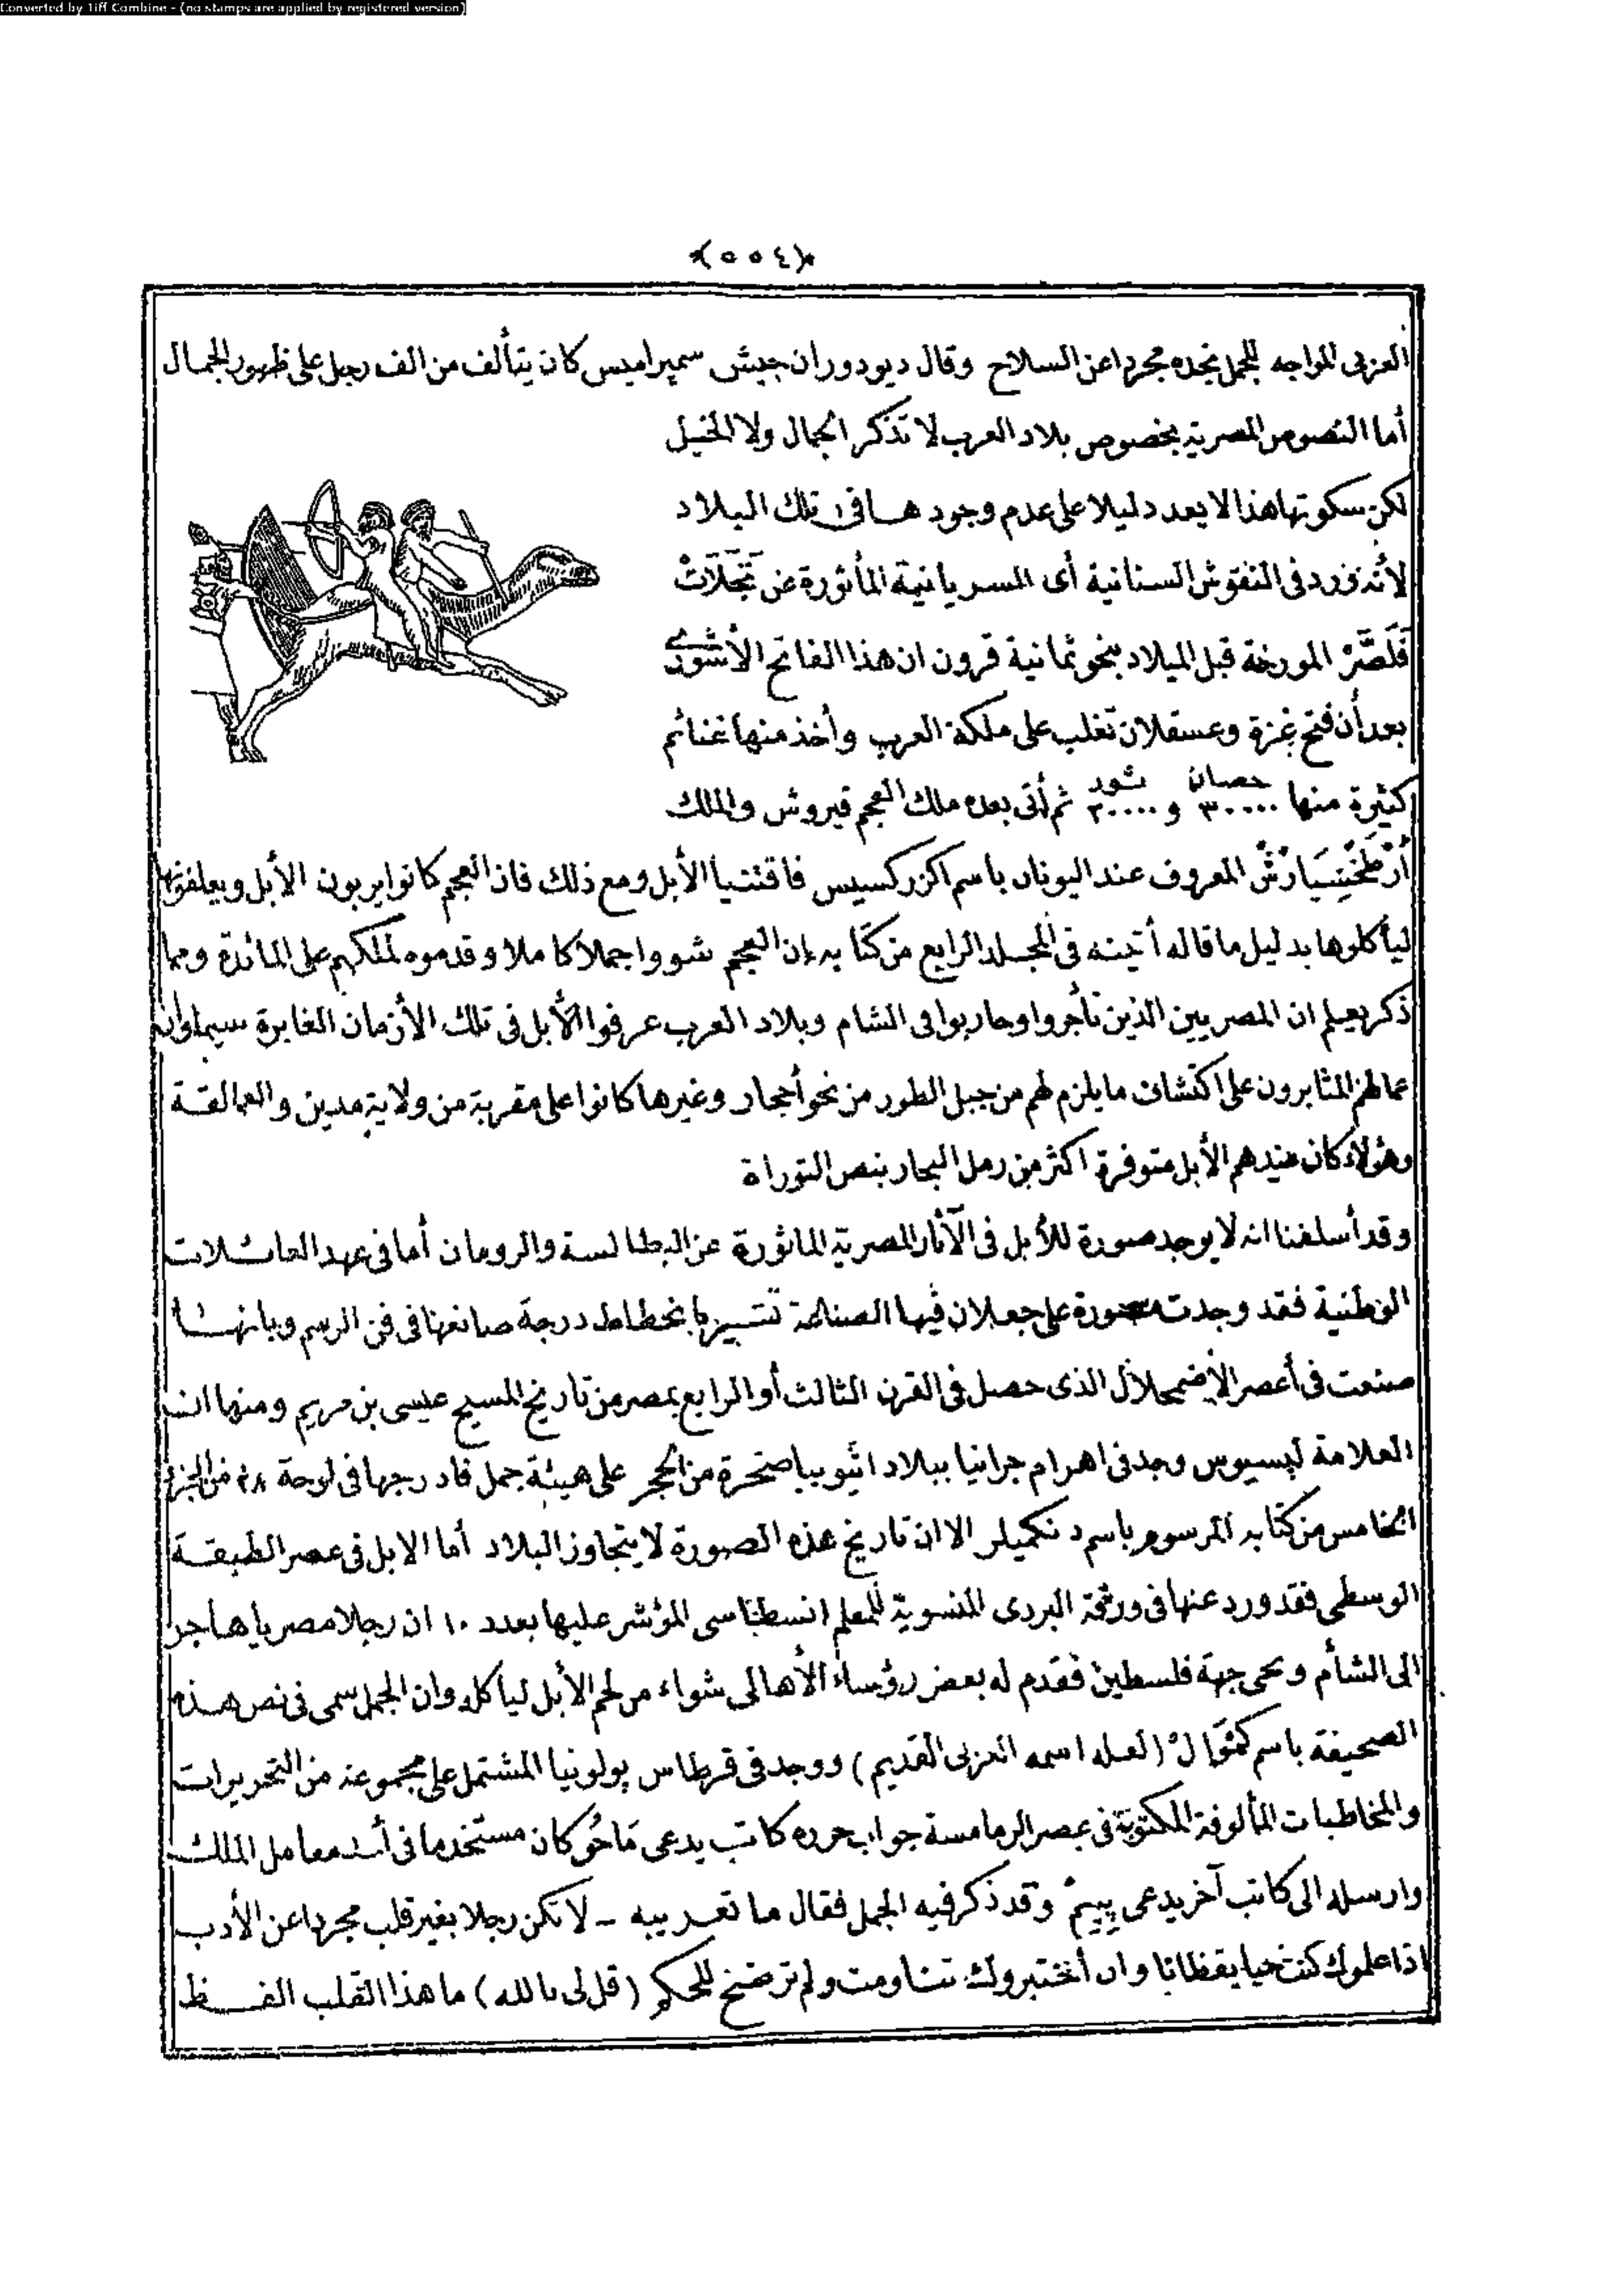 Converted by Tiff Combine - (no stamps are applied by registered version)
*(٥٥٤)*
العربى المواجه للجمل تجده مجردا عن السلاح وقال ديودوران جيش سميراميس كان يتألف من الف رجل على ظهور الجمال
أما النصوص المصرية بخصوص بلاد العرب لا تذكر الجمال ولا الخيل
لكن سكوتها هذا لا يعد دليلا على عدم وجودها فى تلك البلاد
لأنه ورد فى النقوش السنانية أى السريانية المأثورة عن تَجَلَاتْ
فَلَصَّرْ المورخة قبل الميلاد بنحو ثمانية قرون ان هذا الفاتح الأشورى
بعد أن فتح غزة وعسقلان تغلب على ملكة العرب وأخذ منها غنائم
كثيرة منها ٣٠٠٠٠ حصان و ٢٠٠٠٠ ثور ثم أتى بعده ملك العجم قيروش والملك
أَرْطَخْشِيَارْشْ المعروف عند اليونان باسم اكزركسيس فاقتنيا الأبل ومع ذلك فان العجم كانوا يربون الأبل ويعلفونها
ليأكلوها بدليل ما قاله أتينه فى المجلد الرابع من كتابه إن العجم شووا جملا كاملا وقدموه لملكهم على المائدة ومما
ذكر يعلم ان المصريين الذين تأجروا وحاربوا فى الشام وبلاد العرب عرفوا الأبل فى تلك الأزمان الغابرة سيما وان
عمالهم المثابرون على اكتشاف ما يلزم لهم من جبل الطور من نحو أحجار وغيرها كانوا على مقربة من ولاية مدين والعمالقة
وهؤلاء كان عندهم الأبل متوفرة اكثر من رمل البحار بنص التوراة
وقد أسلفنا انه لا يوجد صورة للأبل فى الآثار المصرية الماثورة عن البطالسة والرومان أما فى عهد العائلات
الوطنية فقد وجدت صورة على جعلان فيها الصناعة تشير بانحطاط درجة صانعها فى فن الرسم وبانها
صنعت فى أعصر الأضمحلال الذى حصل فى القرن الثالث أو الرابع بمصر من تاريخ المسيح عيسى بن مريم ومنها ان
العلامة لپسيوس وجد فى اهرام جرانيا ببلاد اثيوبيا صخرة من الحجر على هيئة جمل فادرجها فى لوحة ٢٨ من الجزء
الخامس من كتابه المرسوم باسم دنكميلر الا ان تاريخ هذه الصورة لا يتجاوز البلاد أما الابل فى عصر الطبقة
الوسطى فقد ورد عنها فى ورقة البردى المنسوبة للمعلم انسطناسى المؤشر عليها بعدد ١٠ ان رجلا مصريا هاجر
الى الشأم ونحى جهة فلسطين فقدم له بعض رؤساء الأهالى شواء من لحم الأبل لياكله وان الجمل سمى فى نص هذه
الصحيفة باسم كَمْوَالْ (لعله اسمه العربى القديم) ووجد فى قرطاس پولونيا المشتمل على مجموعة من التحريرات
والمخاطبات المألوفة المكتوبة فى عصر الرمامسة جواب حرره كاتب يدعى مَاحُو كان مستخدما فى أحد معامل الملك
وارسله الى كاتب آخر يدعى پِيِمْ وقد ذكر فيه الجمل فقال ما تعريبه - لا تكن رجلا بغير قلب مجردا عن الأدب
اذا علموك كنت حيا يقظانا وان أختبروك تناومت ولم ترضخ للحكم (قل لى بالله) ما هذا القلب الفظ